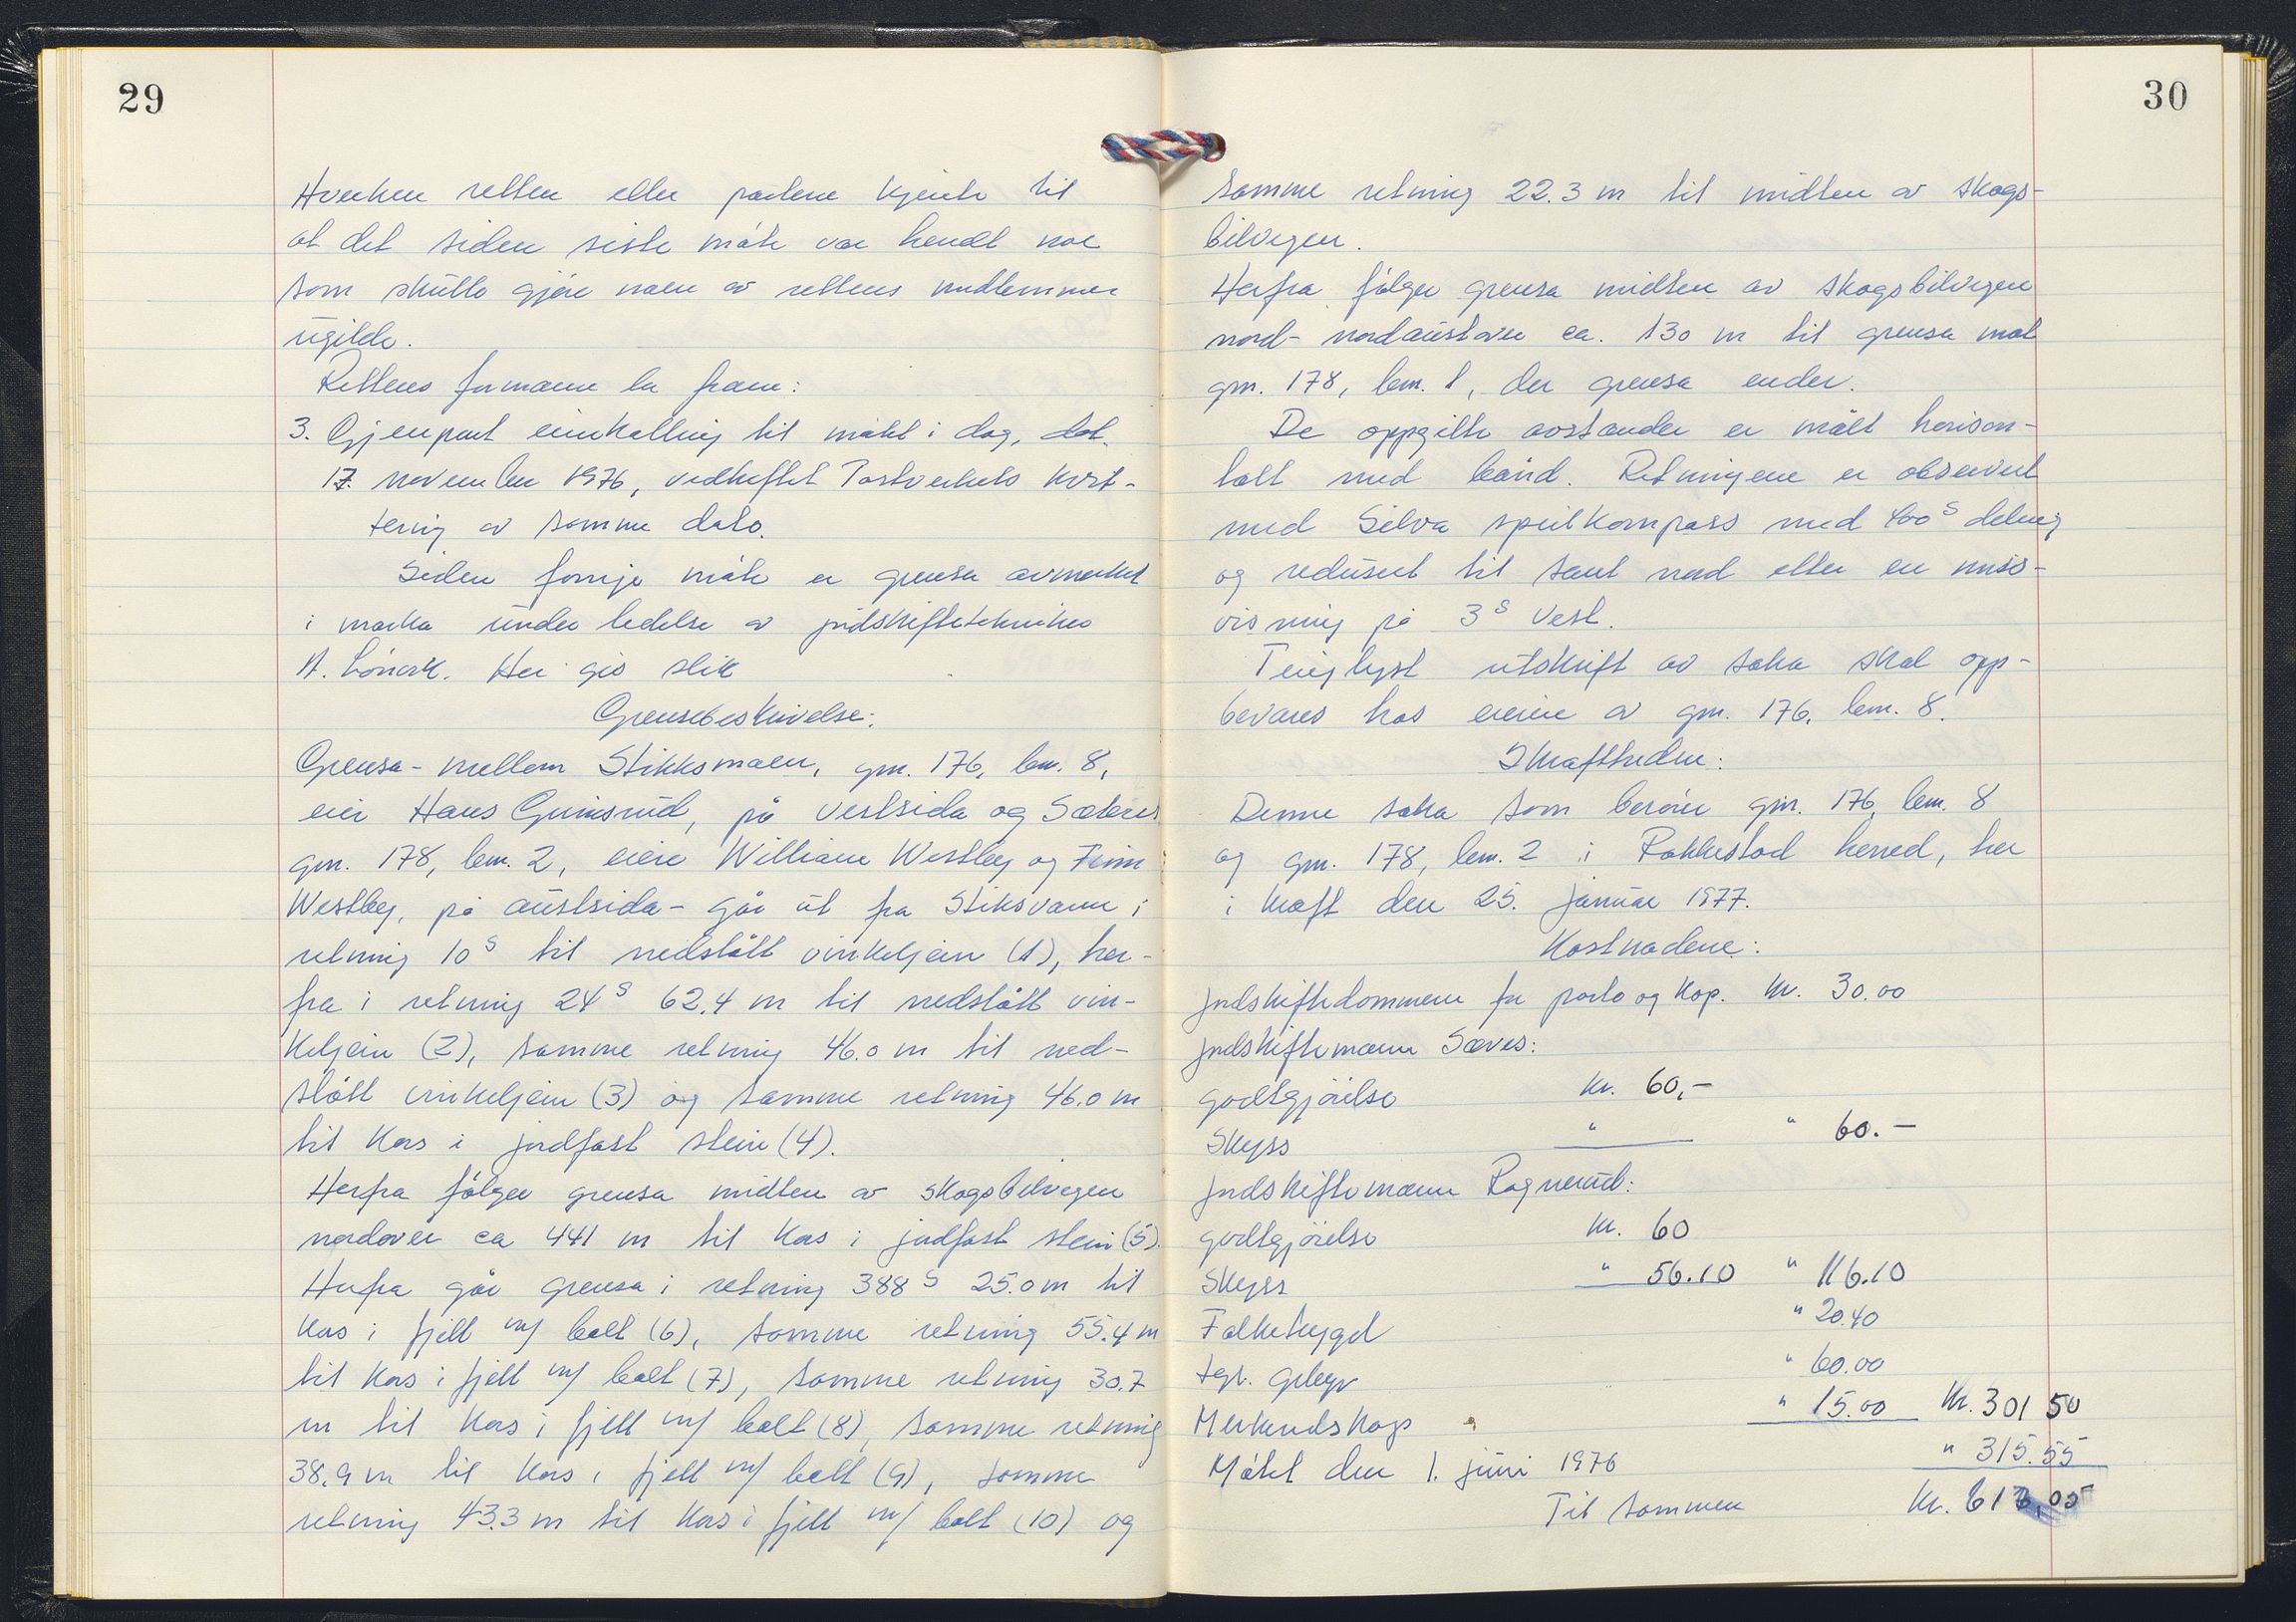 29
Hverken retten eller partene kjente til
at det siden siste møte var hendt noe
som skulle gjøre noen av rettens medlemmer
ugilde.
Rettens formann la fram:
3. Gjenpart innkalling til møtet i dag, dat.
17. november 1976, vedheftet Postverkets kvit-
tering av samme dato.
Siden forrige møte er grensa avmerket
i marka under ledelse av jordskiftetekniker
A. Lønvik. Her gis slik
Grensebeskrivelse:
Grensa - mellom Stikksmoen, gnr. 176, bnr. 8,
eier Hans Grimsrud, på vestsida og Sæteres
gnr. 178, bnr. 2, eiere William Westby og Finn
Westby, på austsida - går ut fra Stiksvann i
retning 10 g til nedslått vinkeljern (1), her-
fra i retning 24 g 62.4 m til nedslått vin-
keljern (2), samme retning 46.0 m til ned-
slått vinkeljern (3) og samme retning 46.0 m
til kors i jordfast stein (4).
Herfra følger grensa midten av skogsbilvegen
nordover ca 441 m til kors i jordfast stein (5).
Herfra går grensa i retning 388 g 25.0 m til
kors i fjell m/ bolt (6), samme retning 55.4 m
til kors i fjell m/ bolt (7), samme retning 30.7
m til kors i fjell m/ bolt (8), samme retning
38.9 m til kors i fjell m/ bolt (9), samme
retning 43.3 m til kors i fjell m/ bolt (10) og
30
samme retning 22.3 m til midten av skogs-
bilvegen.
Herfra følger grensa midten av skogsbilvegen
nord- nordaustover ca. 130 m til grensa mot
gnr. 178, bnr. 1, der grensa ender.
De oppgitte avstander er målt horison-
talt med bånd. Retningene er observert
med Silva speilkompass med 400 g deling
og redusert til sant nord etter en miss-
visning på 3 g vest.
Tinglyst utskrift av saka skal opp-
bevares hos eieren av gnr. 176, bnr. 8.
Ikrafttreden:
Denne saka som berører gnr. 176, bnr. 8
og gnr. 178, bnr. 2 i Rakkestad herred, trer
i kraft den 25. januar 1977.
Kostnadene:
Jordskiftedommeren for porto og kop. kr. 30.00
Jordskiftemann Sæves:
godtgjørelse kr. 60,-
Skyss " " 60.-
Jordskiftemann Ragnerud:
godtgjørelse kr. 60
Skyss " 56.10 " 116.10
Folketrygd " 20.40
Tgl. Gebyr " 60.00
Merkeredskap " 15.00 kr. 301 50
Møtet den 1. juni 1976 " 315.55
Til sammen kr. 617,05